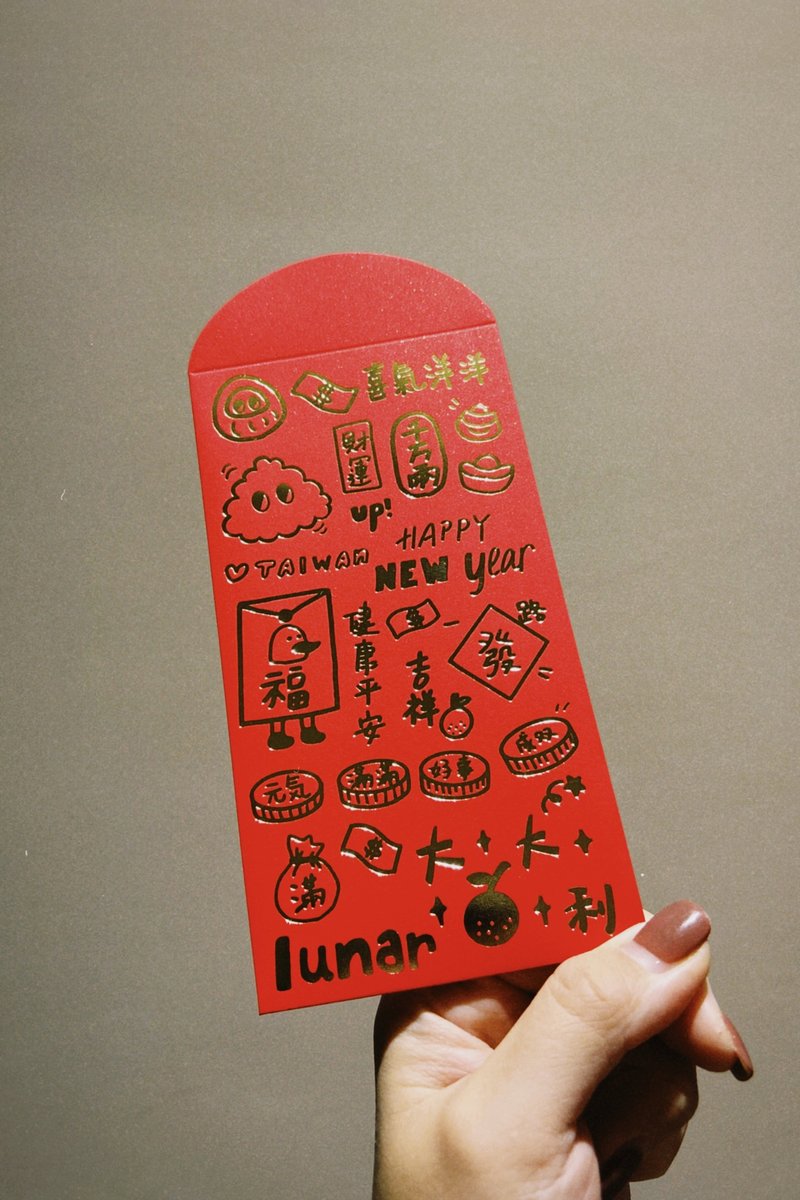 喜氣洋洋
財運
up!
千万兩
TAIWAN
HAPPY
NEW year
福
健康平安
吉祥
發
路
元気
滿滿
好事
成双
滿
大大利
lunar